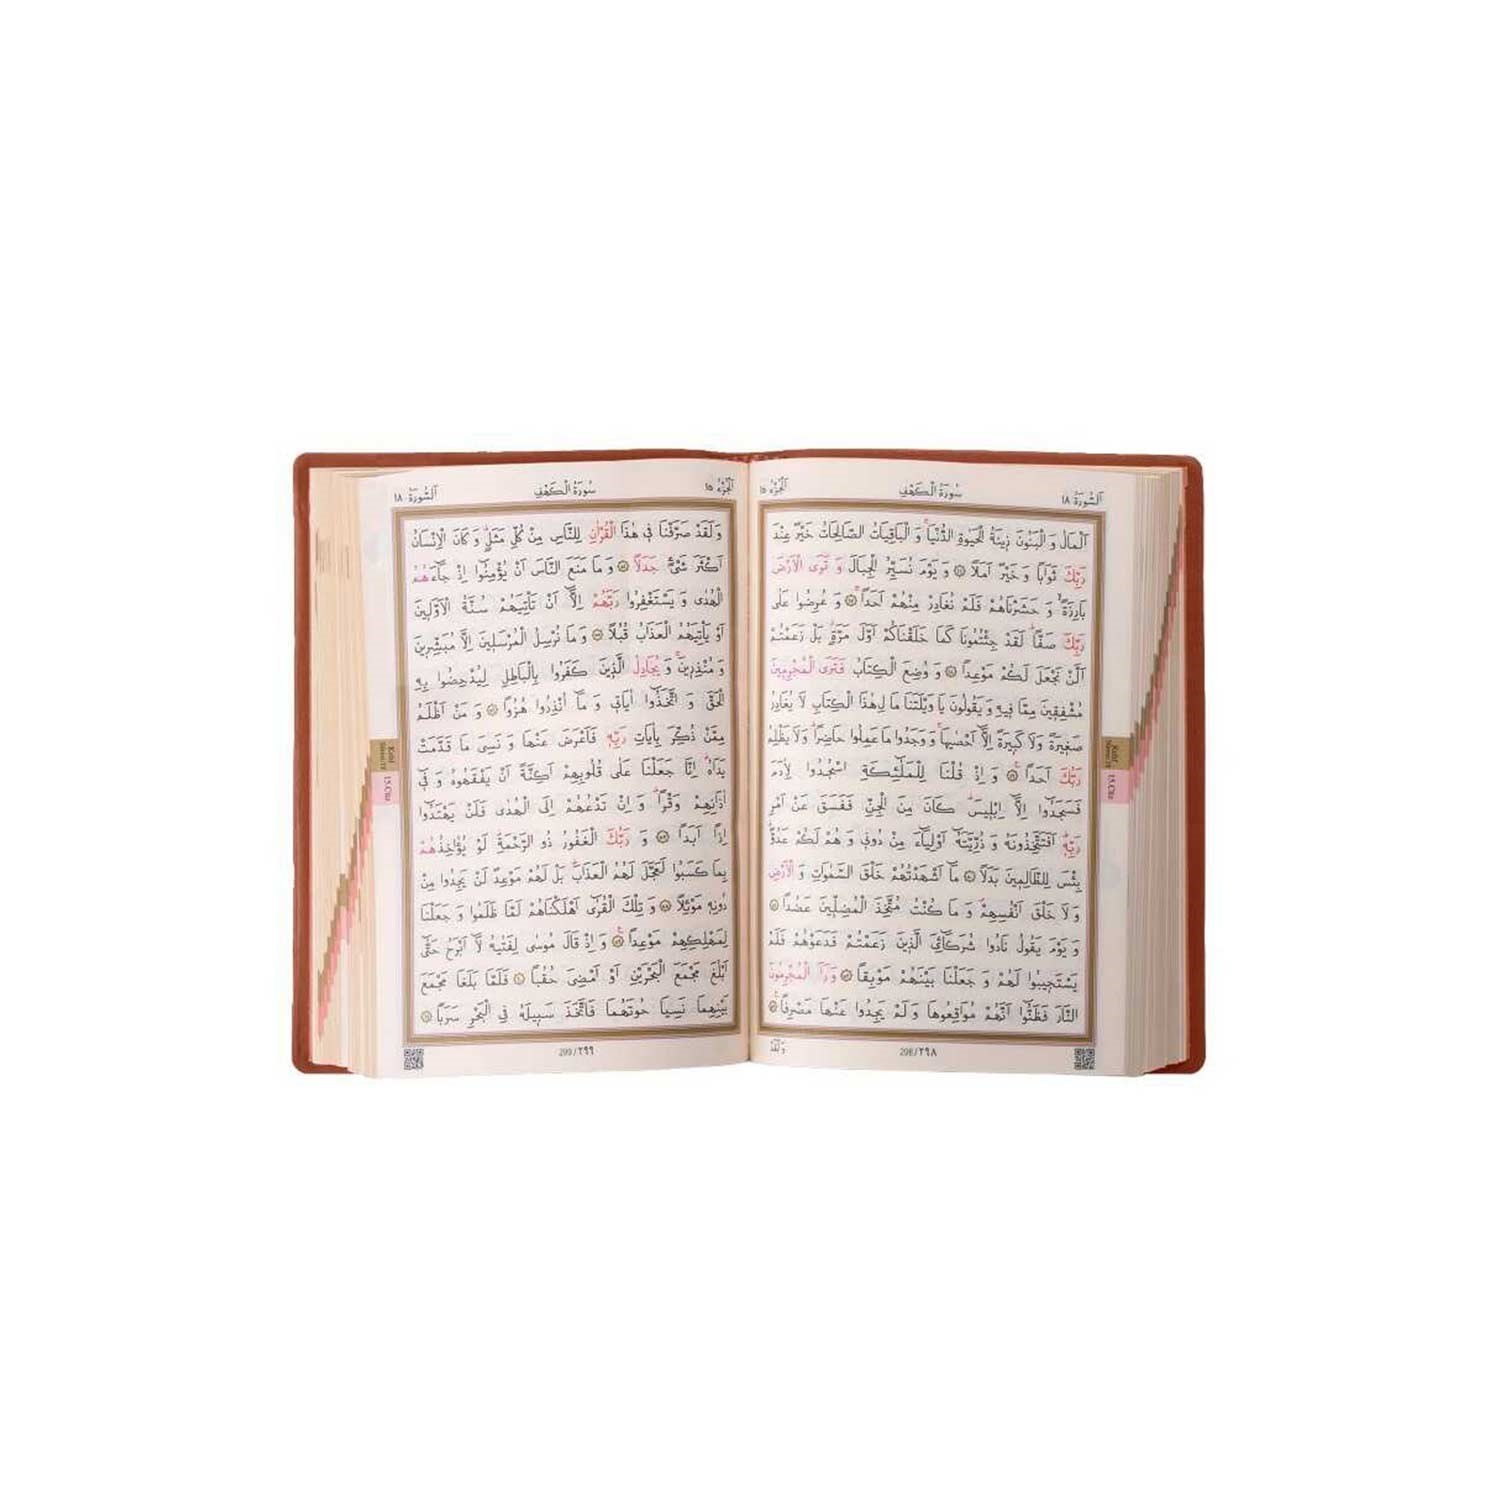 اَلسُّورَةُ ١٨
سُورَةُ الْكَهْفِ
اَلْجُزْءُ ١٥
اَلْمَالُ وَ الْبَنُونَ زِينَةُ الْحَيٰوةِ الدُّنْيَاۚ وَ الْبَاقِيَاتُ الصَّالِحَاتُ خَيْرٌ عِنْدَ
رَبِّكَ ثَوَابًا وَ خَيْرٌ اَمَلًا ٤٦ وَ يَوْمَ نُسَيِّرُ الْجِبَالَ وَ تَرَى الْاَرْضَ
بَارِزَةًۙ وَ حَشَرْنَاهُمْ فَلَمْ نُغَادِرْ مِنْهُمْ اَحَدًاۚ ٤٧ وَ عُرِضُوا عَلٰى
رَبِّكَ صَفًّاۜ لَقَدْ جِئْتُمُونَا كَمَا خَلَقْنَاكُمْ اَوَّلَ مَرَّةٍۘ بَلْ زَعَمْتُمْ
اَلَّنْ نَجْعَلَ لَكُمْ مَوْعِدًا ٤٨ وَ وُضِعَ الْكِتَابُ فَتَرَى الْمُجْرِمِينَ
مُشْفِقِينَ مِمَّا فِيهِ وَ يَقُولُونَ يَا وَيْلَتَنَا مَا لِهٰذَا الْكِتَابِ لَا يُغَادِرُ
صَغِيرَةً وَ لَا كَبِيرَةً اِلَّٓا اَحْصٰيهَاۚ وَ وَجَدُوا مَا عَمِلُوا حَاضِرًاۜ وَ لَا يَظْلِمُ
رَبُّكَ اَحَدًا۟ ٤٩ وَ اِذْ قُلْنَا لِلْمَلٰٓئِكَةِ اسْجُدُوا لِاٰدَمَ
فَسَجَدُٓوا اِلَّٓا اِبْلِيسَۜ كَانَ مِنَ الْجِنِّ فَفَسَقَ عَنْ اَمْرِ
رَبِّهِۜ اَفَتَتَّخِذُونَهُ وَ ذُرِّيَّتَهُٓ اَوْلِيَٓاءَ مِنْ دُونِي وَ هُمْ لَكُمْ عَدُوٌّۜ
بِئْسَ لِلظَّالِمِينَ بَدَلًا ٥٠ مَٓا اَشْهَدْتُهُمْ خَلْقَ السَّمٰوَاتِ وَ الْاَرْضِ
وَ لَا خَلْقَ اَنْفُسِهِمْۖ وَ مَا كُنْتُ مُتَّخِذَ الْمُضِلِّينَ عَضُدًا ٥١
وَ يَوْمَ يَقُولُ نَادُوا شُرَكَٓائِيَ الَّذِينَ زَعَمْتُمْ فَدَعَوْهُمْ فَلَمْ
يَسْتَجِيبُوا لَهُمْ وَ جَعَلْنَا بَيْنَهُمْ مَوْبِقًا ٥٢ وَ رَاَ الْمُجْرِمُونَ
النَّارَ فَظَنُّٓوا اَنَّهُمْ مُوَاقِعُوهَا وَ لَمْ يَجِدُوا عَنْهَا مَصْرِفًا۟ ٥٣
298/٢٩٨
وَ لَقَدْ
Kehf
15.Cüz
اَلْجُزْءُ ١٥
سُورَةُ الْكَهْفِ
اَلسُّورَةُ ١٨
وَ لَقَدْ صَرَّفْنَا فِي هٰذَا الْقُرْاٰنِ لِلنَّاسِ مِنْ كُلِّ مَثَلٍۜ وَ كَانَ الْاِنْسَانُ
اَكْثَرَ شَيْءٍ جَدَلًا ٥٤ وَ مَا مَنَعَ النَّاسَ اَنْ يُؤْمِنُٓوا اِذْ جَٓاءَهُمُ
الْهُدٰى وَ يَسْتَغْفِرُوا رَبَّهُمْ اِلَّٓا اَنْ تَأْتِيَهُمْ سُنَّةُ الْاَوَّلِينَ
اَوْ يَأْتِيَهُمُ الْعَذَابُ قُبُلًا ٥٥ وَ مَا نُرْسِلُ الْمُرْسَلِينَ اِلَّا مُبَشِّرِينَ
وَ مُنْذِرِينَۚ وَ يُجَادِلُ الَّذِينَ كَفَرُوا بِالْبَاطِلِ لِيُدْحِضُوا بِهِ
الْحَقَّ وَ اتَّخَذُٓوا اٰيَاتِي وَ مَٓا اُنْذِرُوا هُزُوًا ٥٦ وَ مَنْ اَظْلَمُ
مِمَّنْ ذُكِّرَ بِاٰيَاتِ رَبِّهِ فَاَعْرَضَ عَنْهَا وَ نَسِيَ مَا قَدَّمَتْ
يَدَاهُۜ اِنَّا جَعَلْنَا عَلٰى قُلُوبِهِمْ اَكِنَّةً اَنْ يَفْقَهُوهُ وَ فِٓي
اٰذَانِهِمْ وَقْرًاۜ وَ اِنْ تَدْعُهُمْ اِلَى الْهُدٰى فَلَنْ يَهْتَدُٓوا
اِذًا اَبَدًا ٥٧ وَ رَبُّكَ الْغَفُورُ ذُو الرَّحْمَةِۜ لَوْ يُؤَاخِذُهُمْ
بِمَا كَسَبُوا لَعَجَّلَ لَهُمُ الْعَذَابَۜ بَلْ لَهُمْ مَوْعِدٌ لَنْ يَجِدُوا مِنْ
دُونِهِ مَوْئِلًا ٥٨ وَ تِلْكَ الْقُرٰٓى اَهْلَكْنَاهُمْ لَمَّا ظَلَمُوا وَ جَعَلْنَا
لِمَهْلِكِهِمْ مَوْعِدًا۟ ٥٩ وَ اِذْ قَالَ مُوسٰى لِفَتٰيهُ لَٓا اَبْرَحُ حَتّٰٓى
اَبْلُغَ مَجْمَعَ الْبَحْرَيْنِ اَوْ اَمْضِيَ حُقُبًا ٦٠ فَلَمَّا بَلَغَا مَجْمَعَ
بَيْنِهِمَا نَسِيَا حُوتَهُمَا فَاتَّخَذَ سَبِيلَهُ فِي الْبَحْرِ سَرَبًا ٦١
299/٢٩٩
Kehf
15.Cüz